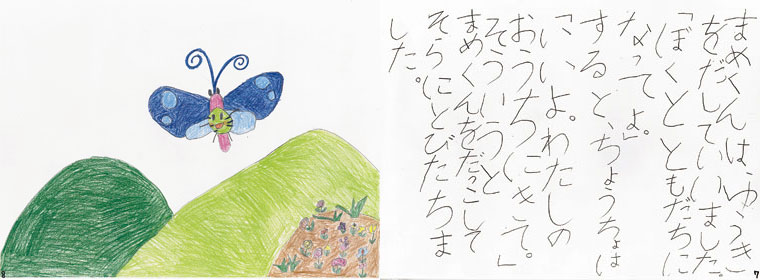 まめくんはゆうき
をだしていいました。
「ぼくとともだちに
なってよ。」
すると、ちょうちょは
「いいよ。わたしの
おうちにきて。」
そういうと
まめくんをだっこして
そらにとびたちま
した。
7
8